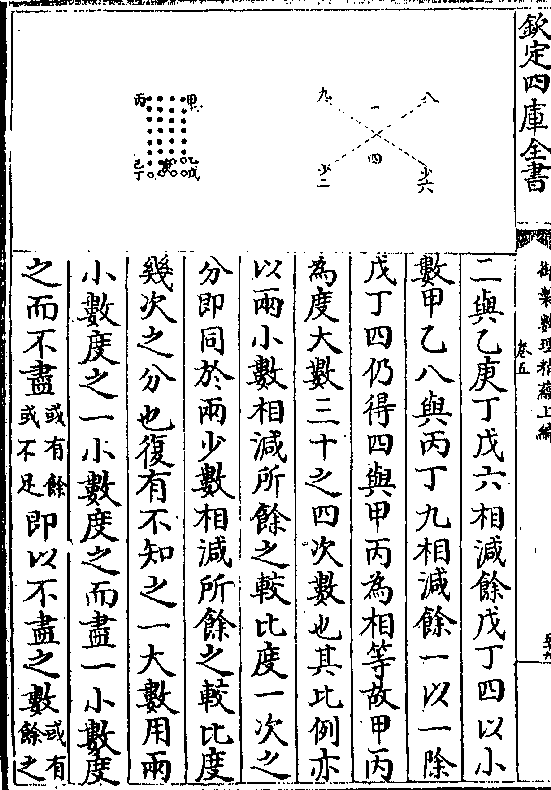 欽定四庫全書
御製數理精蘊上編
卷五
二與乙庚丁戊六相減餘戊丁四以小
數甲乙八與丙丁九相減餘一以一除
戊丁四仍得四與甲丙為相等故甲丙
為度大數三十之四次數也其比例亦
以兩小數相減所餘之較比度一次之
分即同於兩少數相減所餘之較比度
幾次之分也復有不知之一大數用兩
小數度之一小數度之而盡一小數度
之而不盡或有餘或不足即以不盡之數或有餘之
八
九
一
四
少六
少二
甲
丙
乙
戊
庚
己
丁